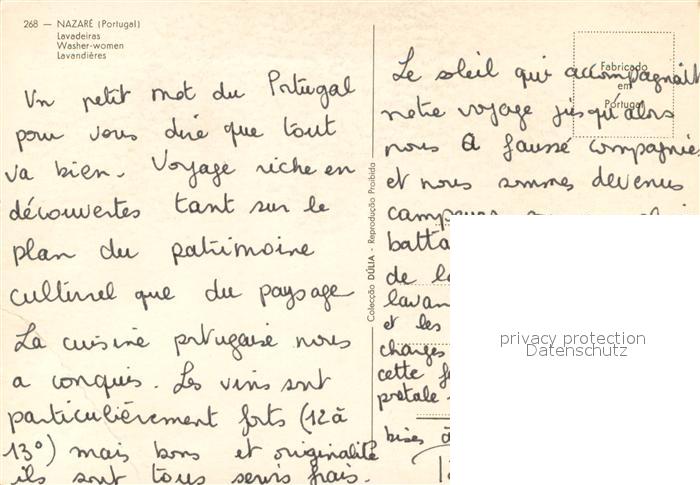 268 — NAZARÉ (Portugal)
Lavadeiras
Washer-women
Lavandières
Un petit mot du Portugal
pour vous dire que tout
va bien. Voyage riche en
découvertes tant sur le
plan du patrimoine
culturel que du paysage
La cuisine portugaise nous
a conquis. Les vins sont
particulièrement forts (12 à
13°) mais bons et originalité
ils sont tous servis frais.
Colecção DÚLIA - Reprodução Proibida
Fabricado
em
Portugal
Le soleil qui accompagnait
notre voyage jusqu'alors
nous a faussé compagnie
et nous sommes devenus
campeurs
batta
de
lavan
et les
charges
cette
bises
privacy protection
Datenschutz